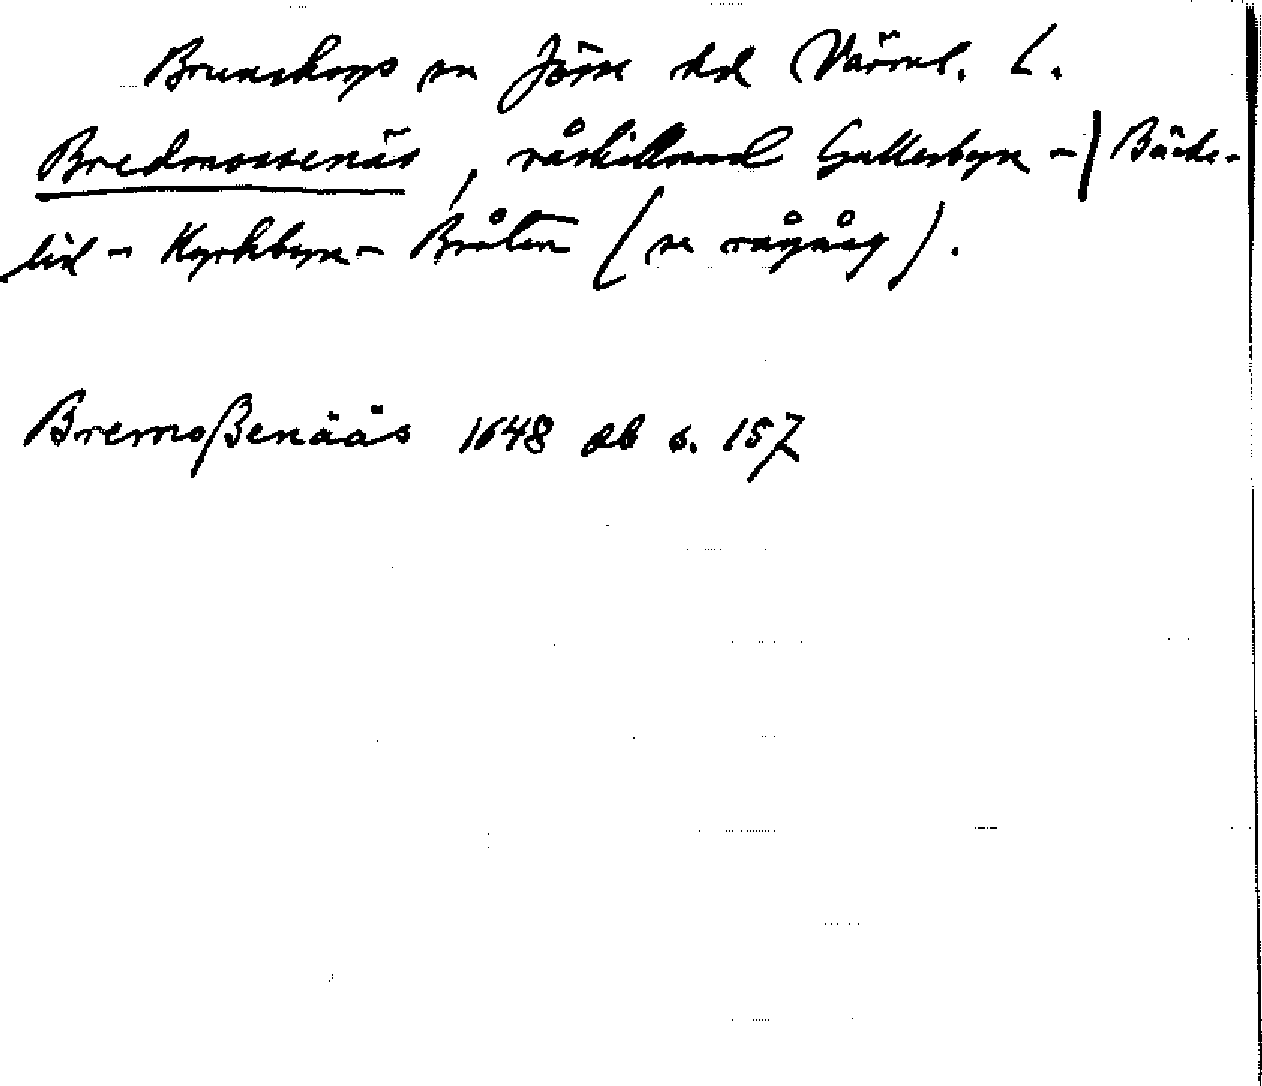 Brunskogs sn Jösse hd Värml. l.
Bredmossenäs, råskillnad Gallerbyn -| Bäcks-
lid - Kyrkbyn - Bråten (se rågång).
Bremoßenääs 1648 ab s. 157